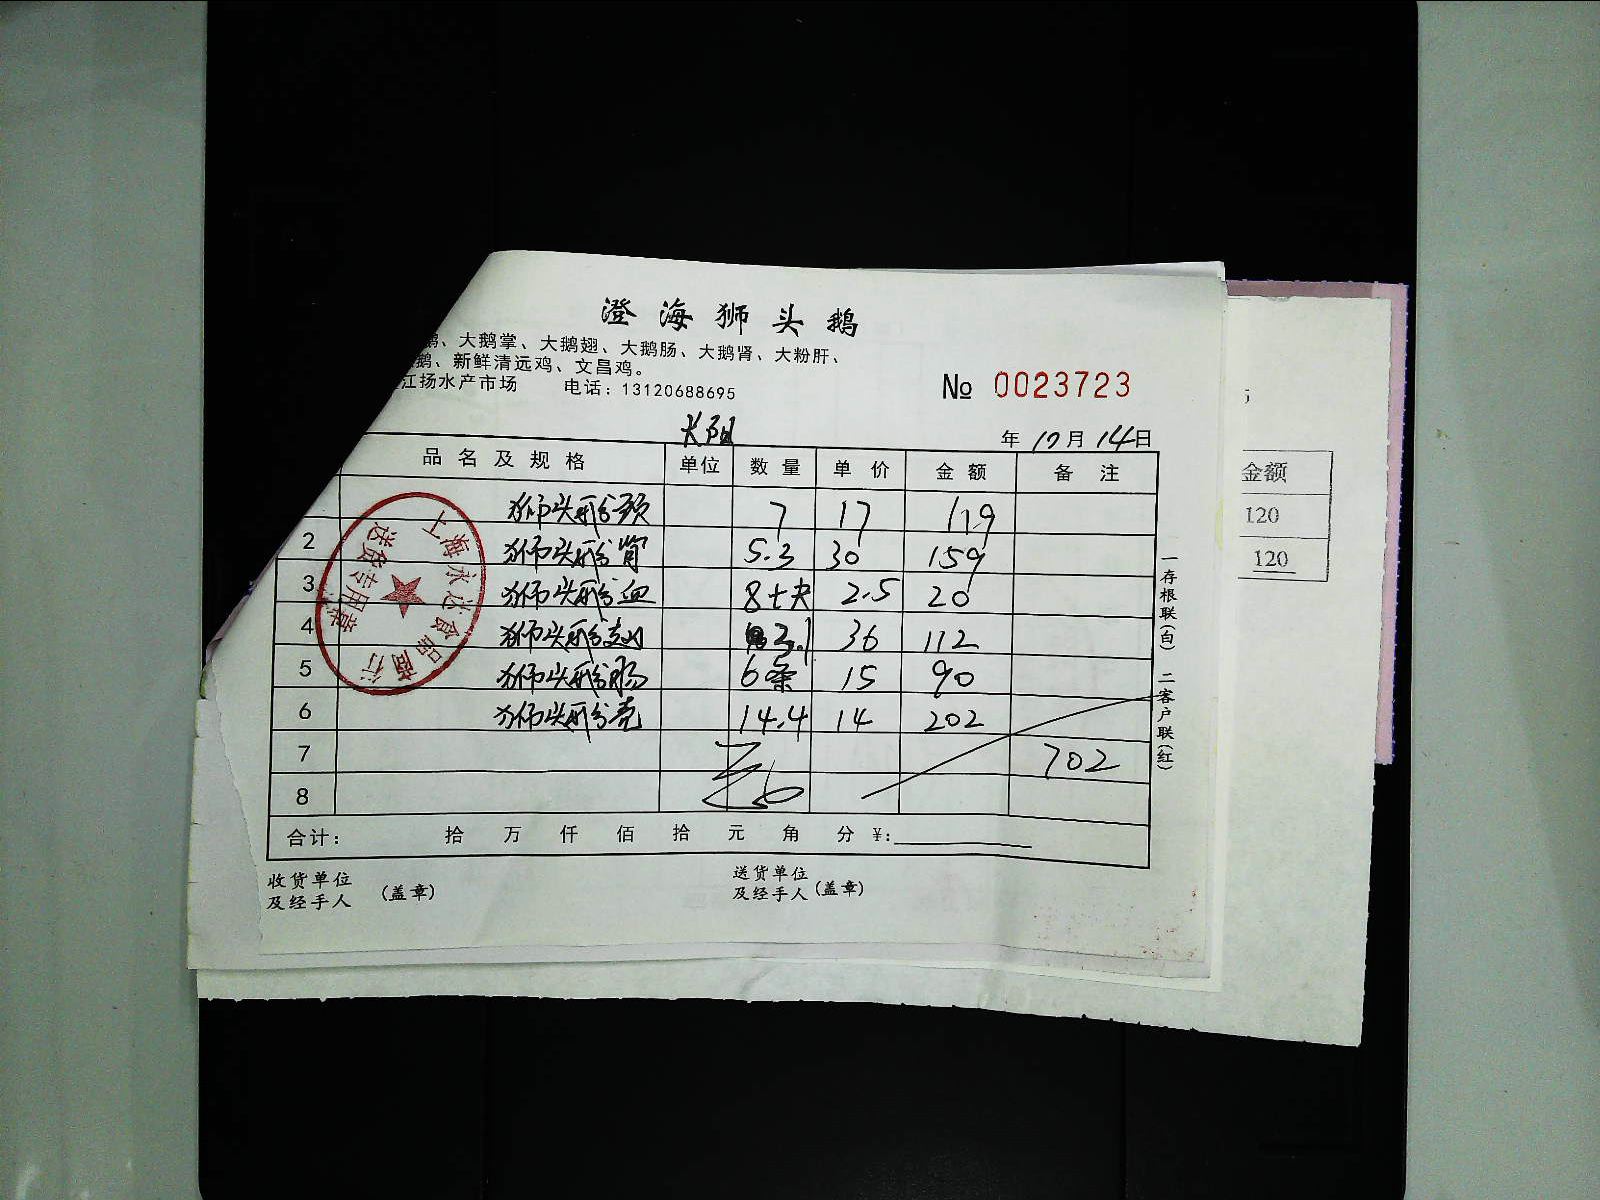 澄海狮头鹅
鹅、大鹅掌、大鹅翅、大鹅肠、大鹅肾、大粉肝、
鹅、新鲜清远鸡、文昌鸡。
江扬水产市场 电话：13120688695
№ 0023723
长阳
年 10月 14日
品名及规格 单位 数量 单价 金额 备注
狮头鹅头 7 17 119
2 狮头鹅肾 5.3 30 159
3 狮头鹅血 8块 2.5 20
4 狮头鹅翅 3.1 36 112
5 狮头鹅肠 6条 15 90
6 狮头鹅壳 14.4 14 202
7 702
8
合计： 拾 万 仟 佰 拾 元 角 分 ¥：
收货单位
及经手人 （盖章）
送货单位
及经手人（盖章）
一存根联（白） 二客户联（红）
上海永送食品商行
送货专用章
金额
120
120